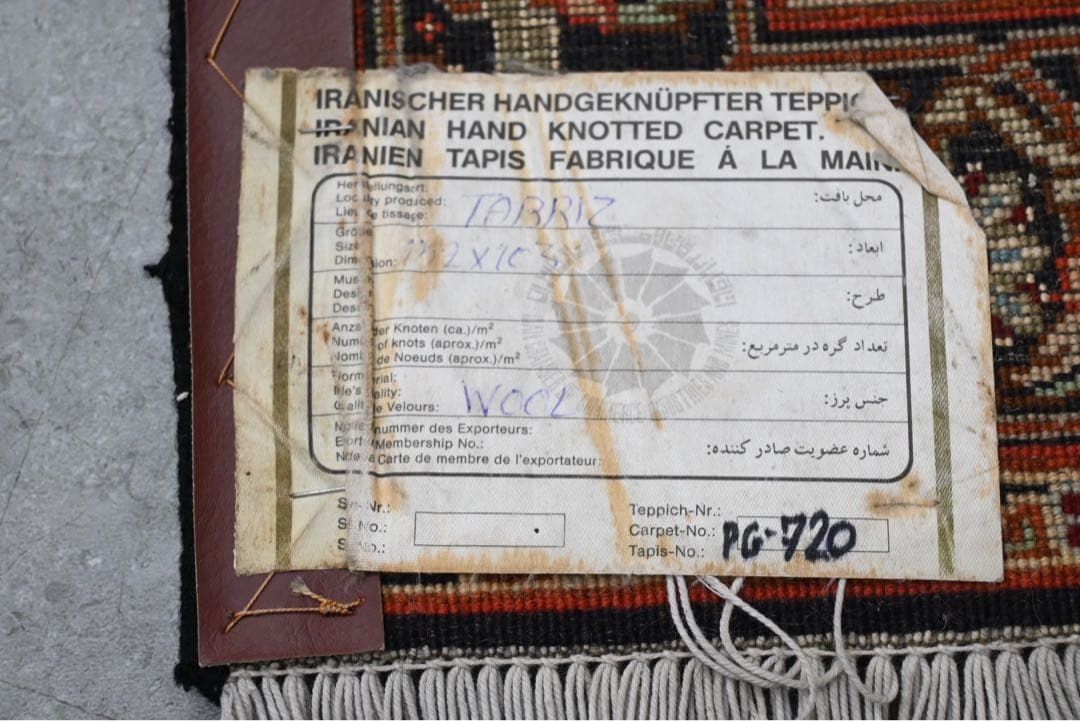 IRANISCHER HANDGEKNÜPFTER TEPPIC
IRANIAN HAND KNOTTED CARPET.
IRANIEN TAPIS FABRIQUE Á LA MAIN.
Herstellungsort.
Locality produced:
Lieu de tissage:
TABRIZ
محل بافت:
Größe
Size
Dimension:
ابعاد:
Design
طرح:
Anza der Knoten (ca.)/m²
Num of knots (aprox.)/m²
Nomb de Noeuds (aprox.)/m²
تعداد گره در مترمربع:
rial:
ality:
Velours:
WOOL
جنس پرز:
nummer des Exporteurs:
Membership No.:
Carte de membre de l'exportateur:
شماره عضویت صادر کننده:
Nr.:
No.:
No.:
Teppich-Nr.:
Carpet-No.:
Tapis-No.:
PG-720